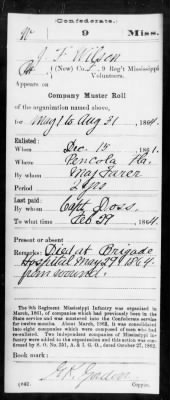 Confederate.
W 9 Miss.
J. F. Wilson
Pvt (New) Co. , 9 Reg't Mississippi
Volunteers.
Appears on
Company Muster Roll
of the organization named above,
for May 1 to Aug 31, 1864
Enlisted:
When Dec 15, 1861.
Where Pencola Fla.
By whom Maj
Period 2 yrs
Last paid:
By whom Capt Doss.
To what time Feb 29, 1864.
Present or absent
Remarks: Died at Brigade
Hospital May 1864.
from wounds.
The 9th Regiment Mississippi Infantry was organized in
March, 1861, of companies which had previously been in the
State service and was mustered into the Confederate service
for twelve months. About March, 1862, it was consolidated
into eight companies which were composed of men who had
re-enlisted. Two independent companies of Mississippi Infantry
were added to the organization and this action was
confirmed by S. O. No. 251, A. & I. G. O., dated October 27, 1862.
Book mark:
(642) Copyist.